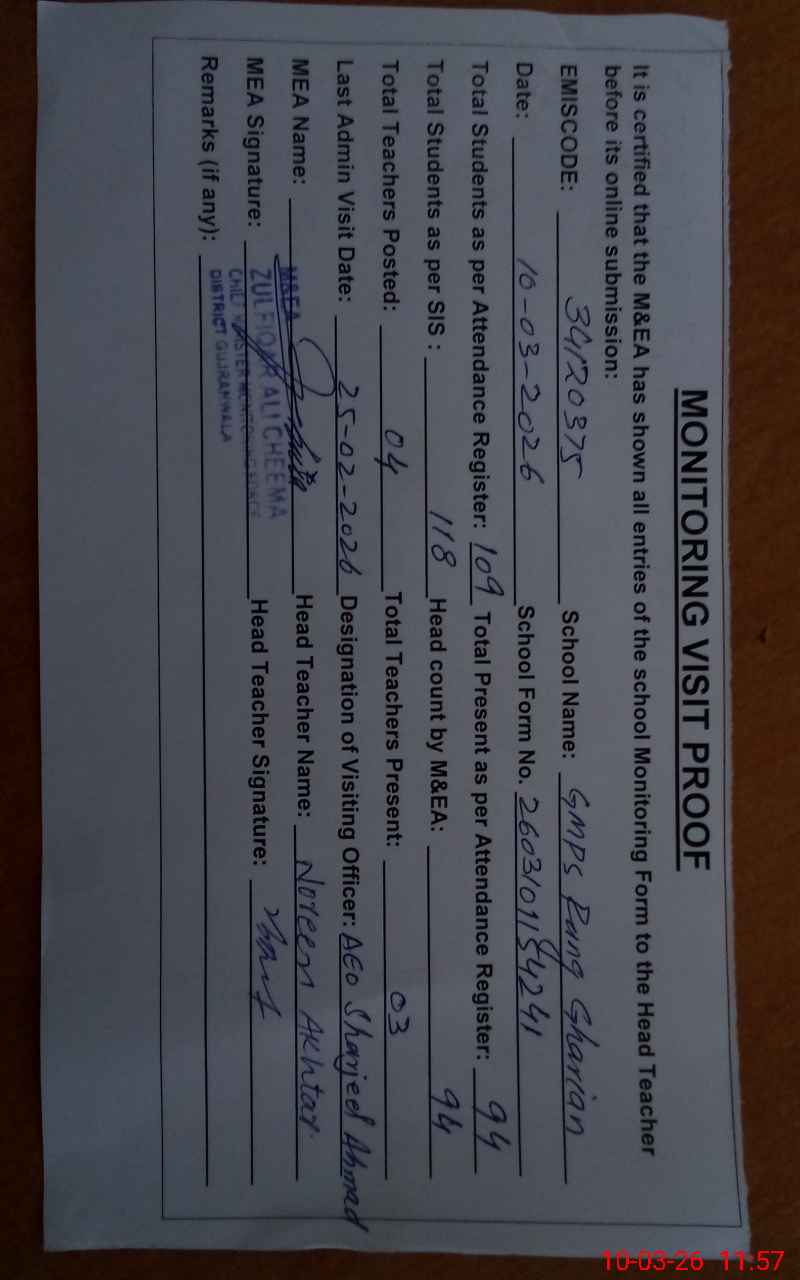 MONITORING VISIT PROOF
It is certified that the M&EA has shown all entries of the school Monitoring Form to the Head Teacher
before its online submission:
EMISCODE: 34120375 School Name: GMPS Rung Gharian
Date: 10-03-2026 School Form No. 2603101154241
Total Students as per Attendance Register: 109 Total Present as per Attendance Register: 94
Total Students as per SIS : 118 Head count by M&EA: 94
Total Teachers Posted: 04 Total Teachers Present: 03
Last Admin Visit Date: 25-02-2026 Designation of Visiting Officer: AEO Sharjeel Ahmad
MEA Name: Head Teacher Name: Noreen Akhtar
MEA Signature: Head Teacher Signature:
M&EA
ZULFIQAR ALI CHEEMA
CHIEF MINISTER MONITORING FORCE
DISTRICT GUJRANWALA
Remarks (if any):
10-03-26 11:57